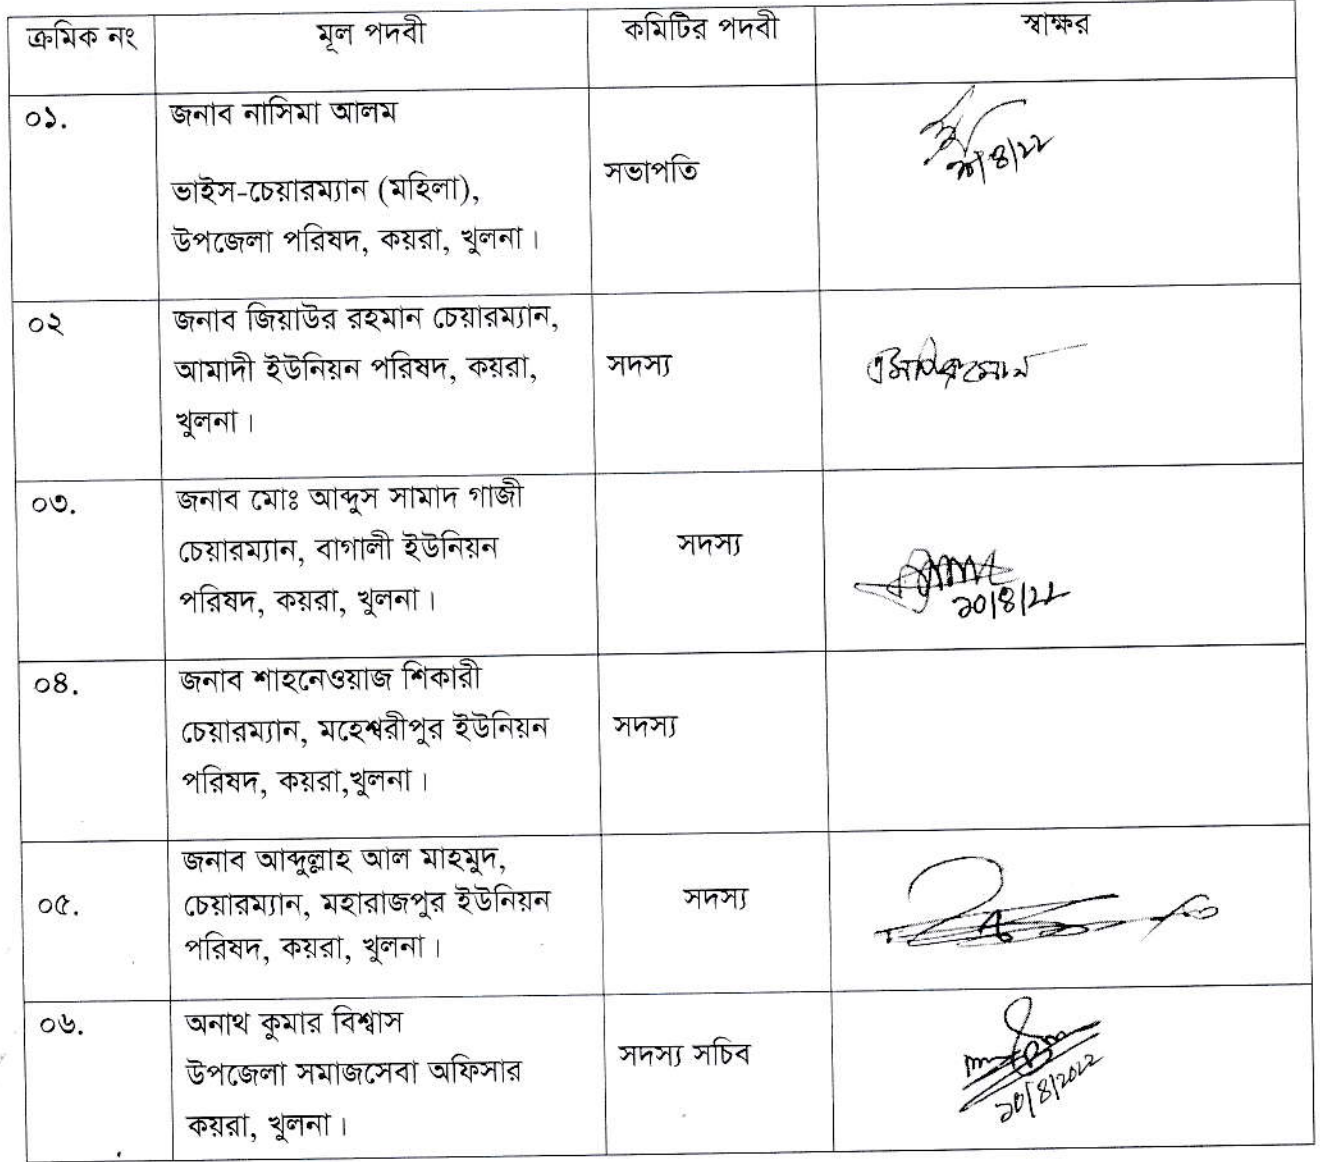 ক্রমিক নং মূল পদবী কমিটির পদবী স্বাক্ষর
০১. জনাব নাসিমা আলম
ভাইস-চেয়ারম্যান (মহিলা),
উপজেলা পরিষদ, কয়রা, খুলনা।
সভাপতি
২০/৪/২২
০২ জনাব জিয়াউর রহমান চেয়ারম্যান,
আমাদী ইউনিয়ন পরিষদ, কয়রা,
খুলনা।
সদস্য
০৩. জনাব মোঃ আব্দুস সামাদ গাজী
চেয়ারম্যান, বাগালী ইউনিয়ন
পরিষদ, কয়রা, খুলনা।
সদস্য
২০/৪/২২
০৪. জনাব শাহনেওয়াজ শিকারী
চেয়ারম্যান, মহেশ্বরীপুর ইউনিয়ন
পরিষদ, কয়রা,খুলনা।
সদস্য
০৫. জনাব আব্দুল্লাহ আল মাহমুদ,
চেয়ারম্যান, মহারাজপুর ইউনিয়ন
পরিষদ, কয়রা, খুলনা।
সদস্য
০৬. অনাথ কুমার বিশ্বাস
উপজেলা সমাজসেবা অফিসার
কয়রা, খুলনা।
সদস্য সচিব
২০/৪/২০২২